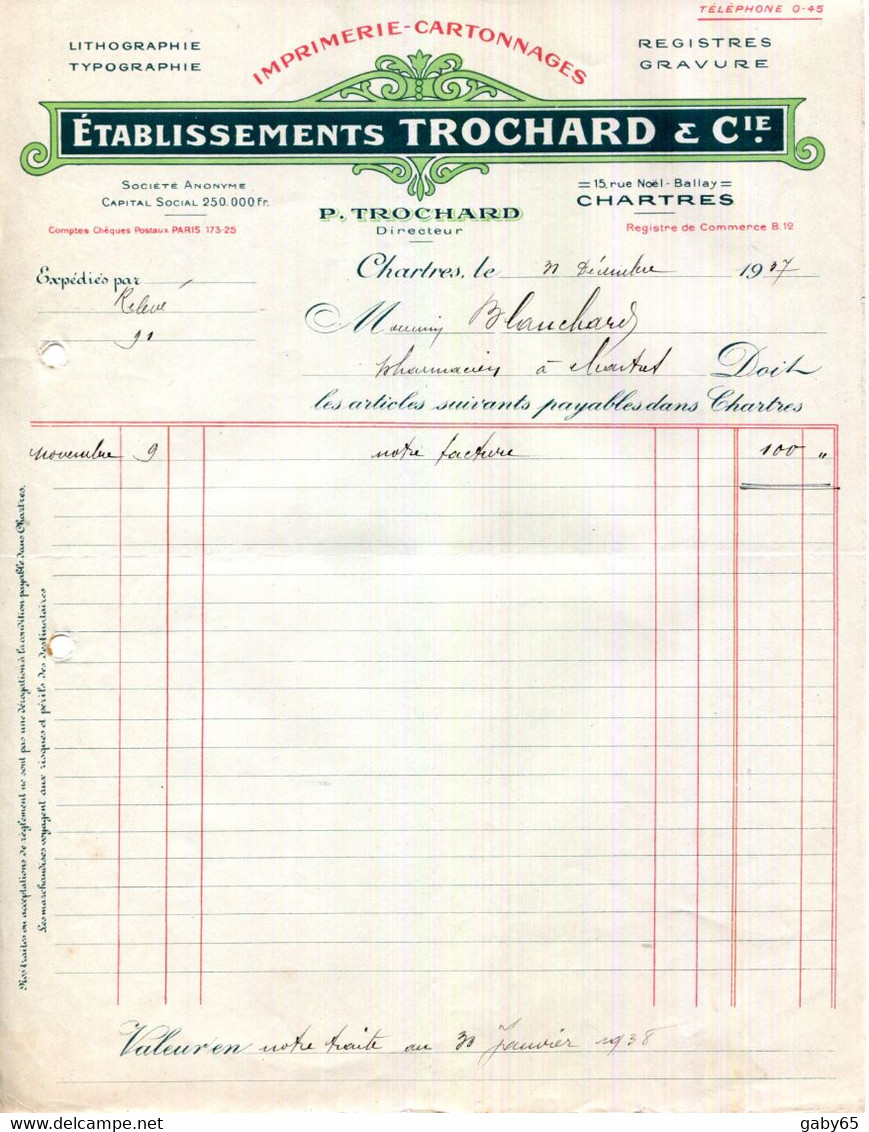 TÉLÉPHONE 0-45
LITHOGRAPHIE
TYPOGRAPHIE
IMPRIMERIE-CARTONNAGES
REGISTRES
GRAVURE
ÉTABLISSEMENTS TROCHARD & CIE.
SOCIÉTÉ ANONYME
CAPITAL SOCIAL 250.000 Fr.
Comptes Chèques Postaux PARIS 173-25
P. TROCHARD
Directeur
15, rue Noël-Ballay
CHARTRES
Registre de Commerce B.12
Chartres, le Décembre 1937
Expédiés par
Relevé
91
Blanchard
pharmacien à Doit
les articles suivants payables dans Chartres
novembre 9 notre facture 100 "
Nos traites ou acceptations de règlement ne sont pas une dérogation à la condition payable dans Chartres.
Les marchandises voyagent aux risques et périls des destinataires
Valeur en notre traite au 30 Janvier 1938
delcampe.net
gaby65